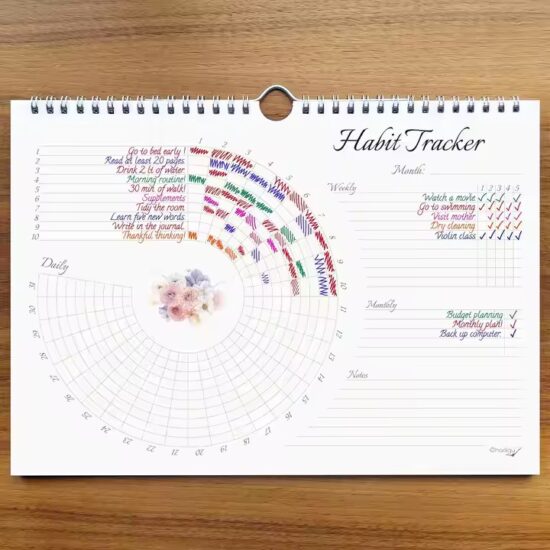 Habit Tracker
Month:
1 Go to bed early !
2 Read at least 20 pages
3 Drink 2 lt of water
4 Morning routine!
5 30 min of walk!
6 Supplements
7 Tidy the room
8 Learn five new words
9 Write in the journal
10 Thankful thinking!
Daily
1
2
3
4
5
6
7
8
9
10
11
12
13
14
15
16
17
18
19
20
21
22
23
24
25
26
27
28
29
30
31
Weekly
1 2 3 4 5
Watch a movie ✓✓✓✓
Go to swimming ✓✓✓✓✓
Visit mother ✓✓✓✓
Dry cleaning ✓✓✓✓
Violin class ✓✓✓✓✓
Monthly
Budget planning ✓
Monthly plan! ✓
Back up computer. ✓
Notes